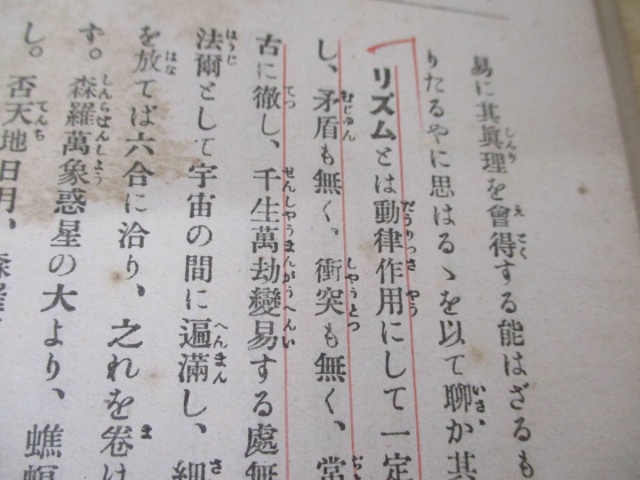 易に其眞理を會得する能はざるも
りたるやに思はるゝを以て聊か其
リズムとは動律作用にして一定
し、矛盾も無く、衝突も無く、常
古に徹し、千生萬劫變易する處無
法爾として宇宙の間に遍滿し、細
を放てば六合に洽り、之れを卷け
す。森羅萬象惑星の大より、蟭螟
し。否天地日月、森羅